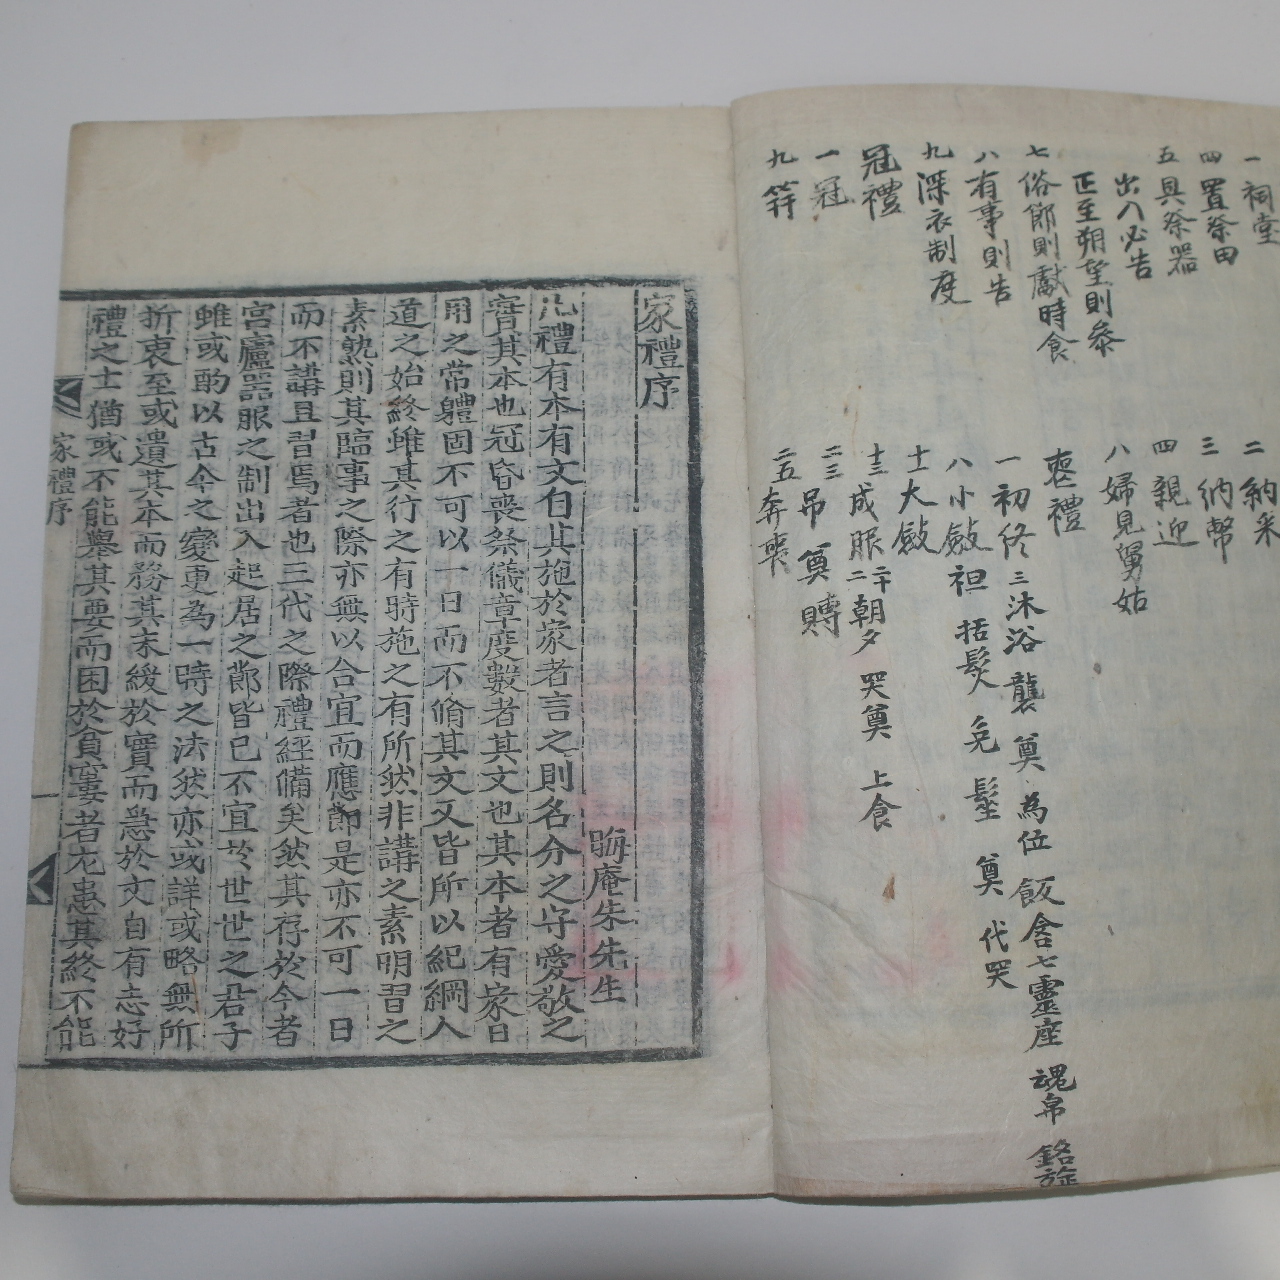 一 祠堂
四 置祭田
五 具祭器
出入必告
正至朔望則參
七 俗節則獻時食
八 有事則告
九 深衣制度
冠禮
一 冠
九 笄
二 納采
三 納幣
四 親迎
八 婦見舅姑
喪禮
一 初終 三 沐浴 襲 奠 為位 飯含 七 靈座 魂帛 銘旌
八 小斂 袒 括髮 免 髽 奠 代哭
十一 大斂
十三 成服 二十二 朝夕 哭奠 上食
二三 吊 奠 賻
二五 奔喪
家禮序
晦庵朱先生
凡禮有本有文自其施於家者言之則名分之守愛敬之
實其本也冠昏喪祭儀章度數者其文也其本者有家日
用之常體固不可以一日而不脩其文又皆所以紀綱人
道之始終雖其行之有時施之有所然非講之素明習之
素熟則其臨事之際亦無以合宜而應節是亦不可一日
而不講且習焉者也三代之際禮經備矣然其存於今者
宮廬器服之制出入起居之節皆已不宜於世世之君子
雖或酌以古今之變更為一時之法然亦或詳或略無所
折衷至或遺其本而務其末緩於實而急於文自有志好
禮之士猶或不能舉其要而困於貧窶者尤患其終不能
家禮序